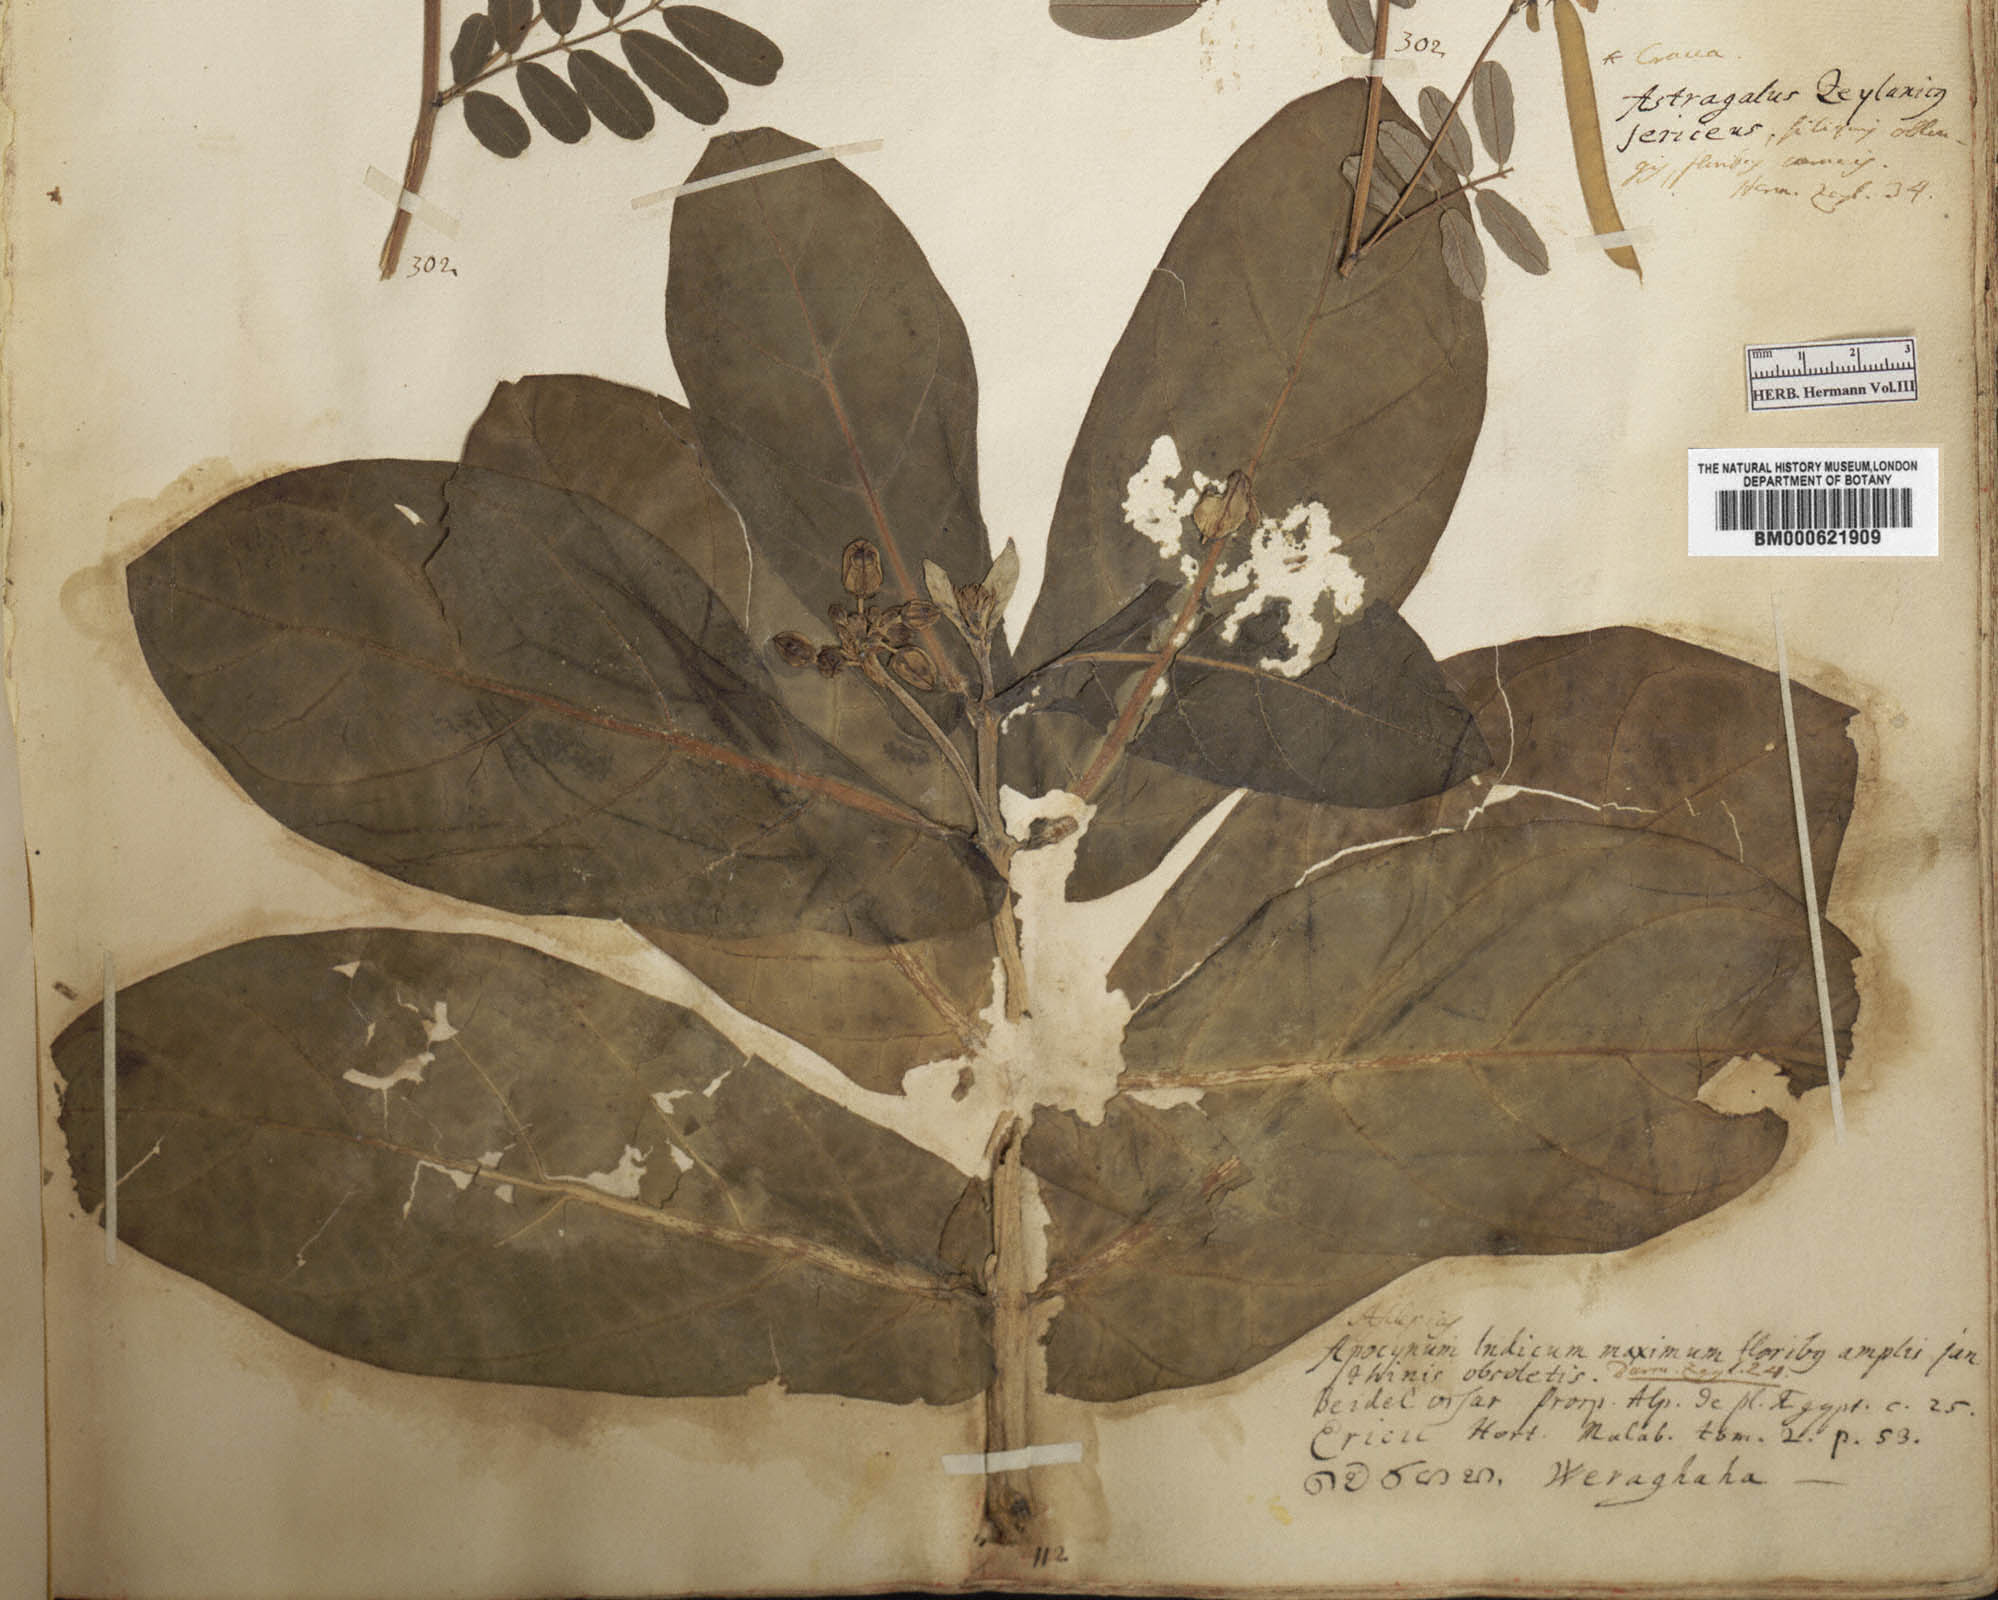 302
302
* Cracca.
Astragalus Zeylanicg
sericeus, siliquis oblon-
gis, floribg carneis.
Herm. Zeyl. 34.
mm 1 2 3
HERB. Hermann Vol.III
THE NATURAL HISTORY MUSEUM,LONDON
DEPARTMENT OF BOTANY
BM000621909
Asclepias
Apocynum Indicum maximum floribg amplis jan
thinis obsoletis. Burm. Zeyl. 24.
Beidel ossar Prosp. Alp. de pl. Ægypt. c. 25.
Ericu Hort. Malab. tom. 2. p. 53.
Weraghaha —
112